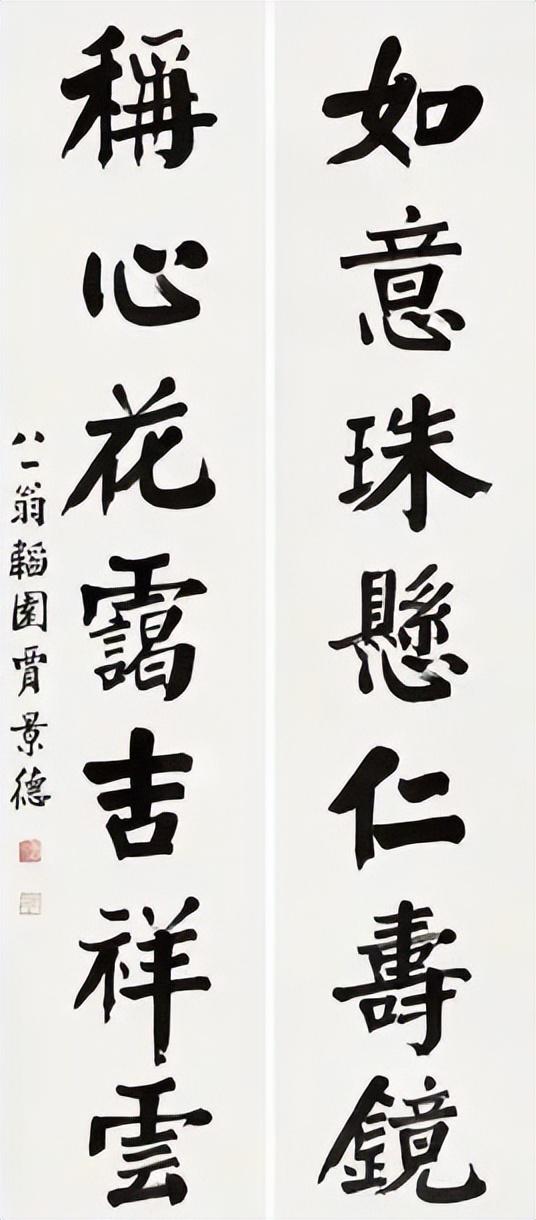 如意珠懸仁壽鏡
稱心花靄吉祥雲
八一翁韜園賈景德